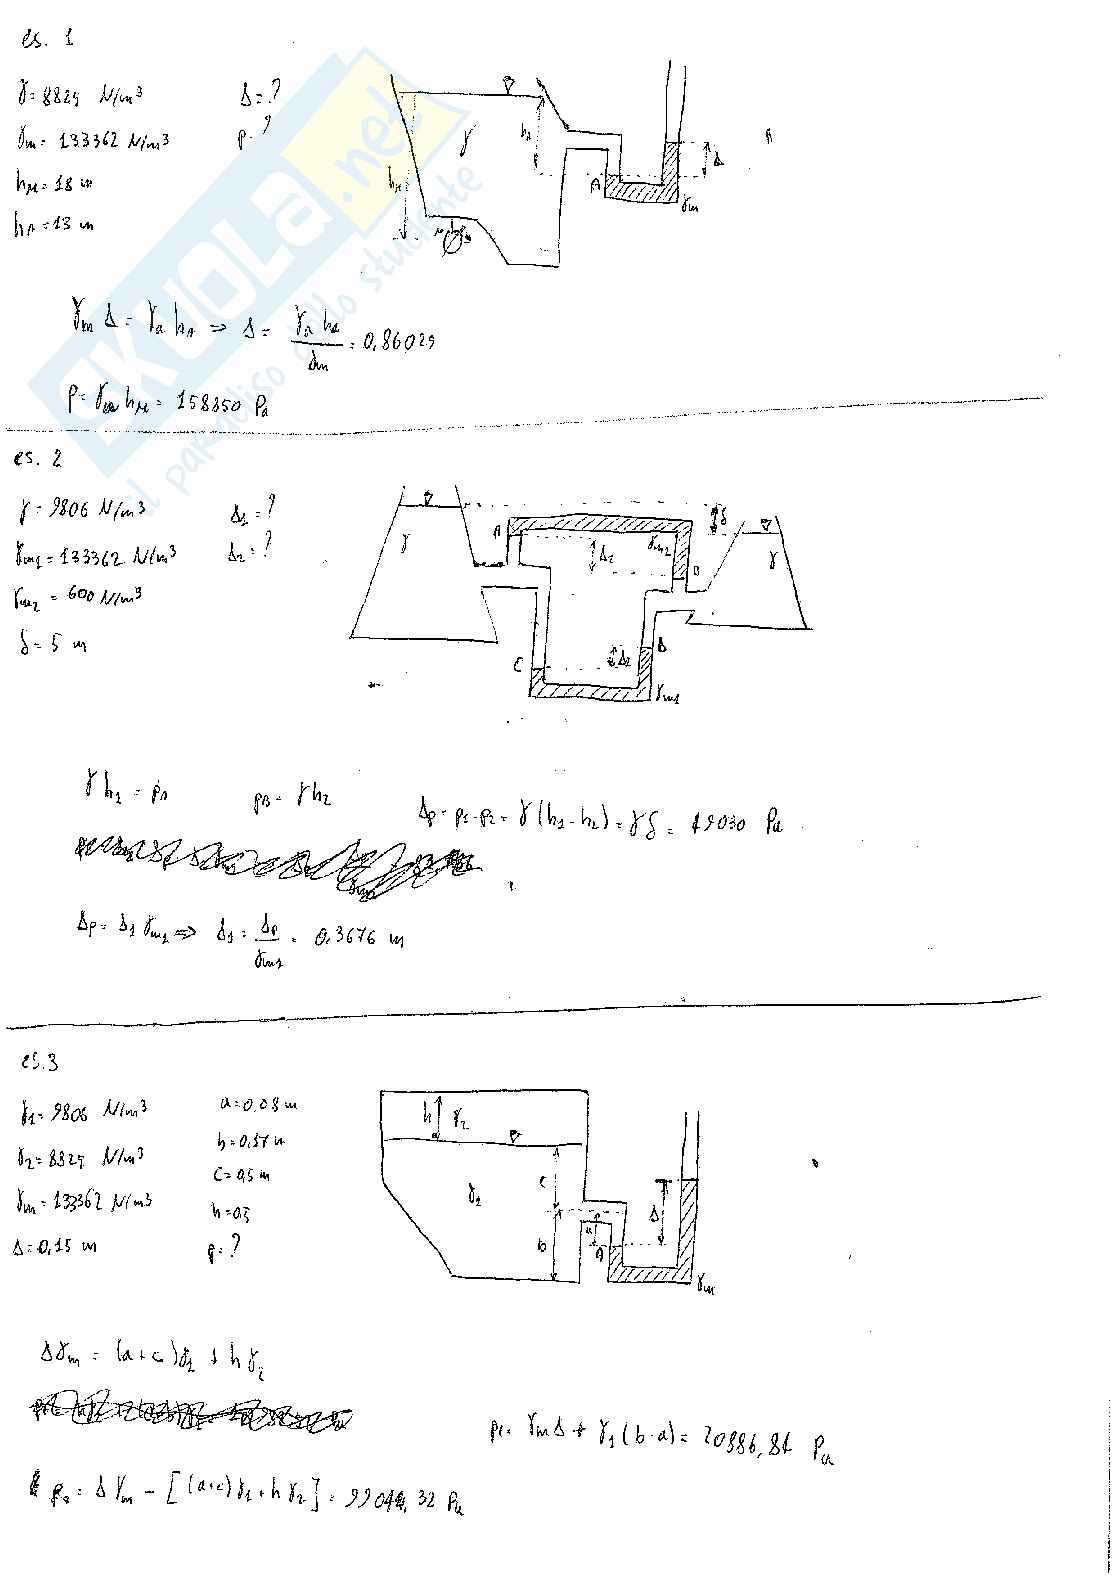 es. 1
γ = 8825 N/m³ Δ = ?
γm = 133362 N/m³ p = ?
hM = 18 m
hA = 13 m
hA γ A Δ γm
hM
γm Δ = γa hA ⇒ Δ = γa hA / Δm = 0,86029
P = γm hM = 158850 Pa
SKUOLA.net
il paradiso dello studente
es. 2
γ = 9806 N/m³ Δ1 = ?
γm1 = 133362 N/m³ Δ2 = ?
γm2 = 600 N/m³
δ = 5 m
γ A Δ2 γm2 B δ γ
C Δ2 Δ γm1
γ h1 = pA pB = γ h2 Δp = p1 - p2 = γ (h1 - h2) = γ δ = 49030 Pa
Δp = Δ1 γm1 ⇒ Δ1 = Δp / γm1 = 0,3676 m
es. 3
γ1 = 9806 N/m³ a = 0,08 m
γ2 = 8825 N/m³ b = 0,57 m
γm = 133362 N/m³ c = 0,5 m
Δ = 0,15 m h = 0,5
p = ?
h γ2
γ2 c b a A Δ γm
Δγm = (a+c)γ1 + h γ2
pF = γm Δ + γ1 (b-a) = 20886,84 Pa
p0 = Δ γm - [(a+c) γ1 + h γ2] = 99044,32 Pa